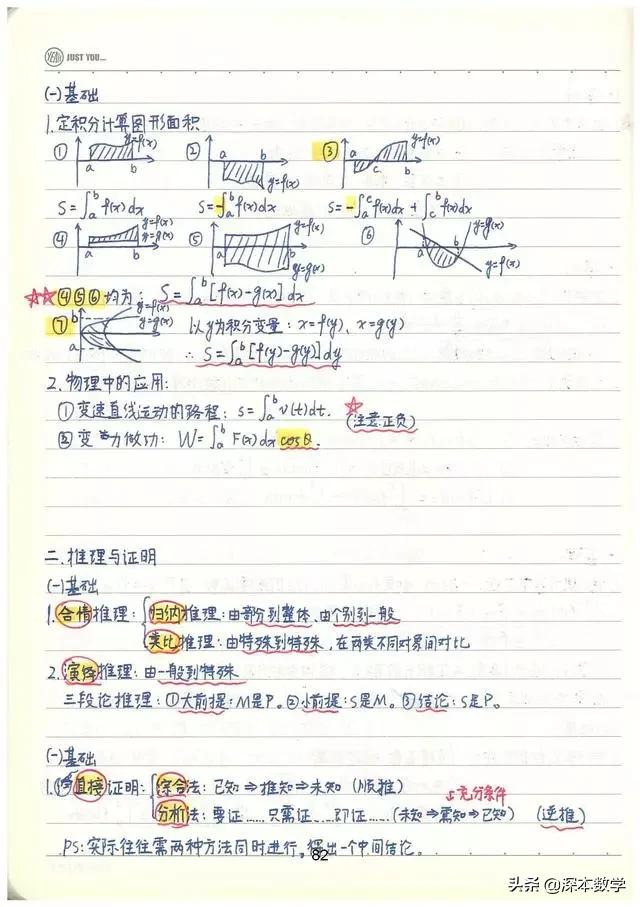 YEAH JUST YOU...
(一)基础
1.定积分计算图形面积
① y=f(x) a b ② a b y=f(x) ③ a c b y=f(x)
S=∫_a^b f(x)dx S=-∫_a^b f(x)dx S=-∫_a^c f(x)dx+∫_c^b f(x)dx
④ y=f(x) y=g(x) a b ⑤ a b y=f(x) y=g(x) ⑥ a b y=g(x) y=f(x)
☆☆④⑤⑥均为: S=∫_a^b [f(x)-g(x)]dx
⑦ b a y=f(x) y=g(x) 以y为积分变量: x=f(y)、x=g(y)
∴ S=∫_a^b [f(y)-g(y)]dy
2.物理中的应用:
①变速直线运动的路程: s=∫_a^b v(t)dt. ☆(注意正负)
②变力做功: W=∫_a^b F(x)dx cosθ.
二.推理与证明
(一)基础
1.合情推理: 归纳推理:由部分到整体、由个别到一般
类比推理:由特殊到特殊,在两类不同对象间对比
2.演绎推理:由一般到特殊
三段论推理:①大前提:M是P。②小前提:S是M。③结论:S是P。
(一)基础
1.直接证明: 综合法:已知⇒推知⇒未知 (顺推)
充分条件
分析法:要证……只需证……即证……(未知⇒需知⇒已知) (逆推)
PS:实际往往需两种方法同时进行。得出一个中间结论。
82
头条 @深本数学